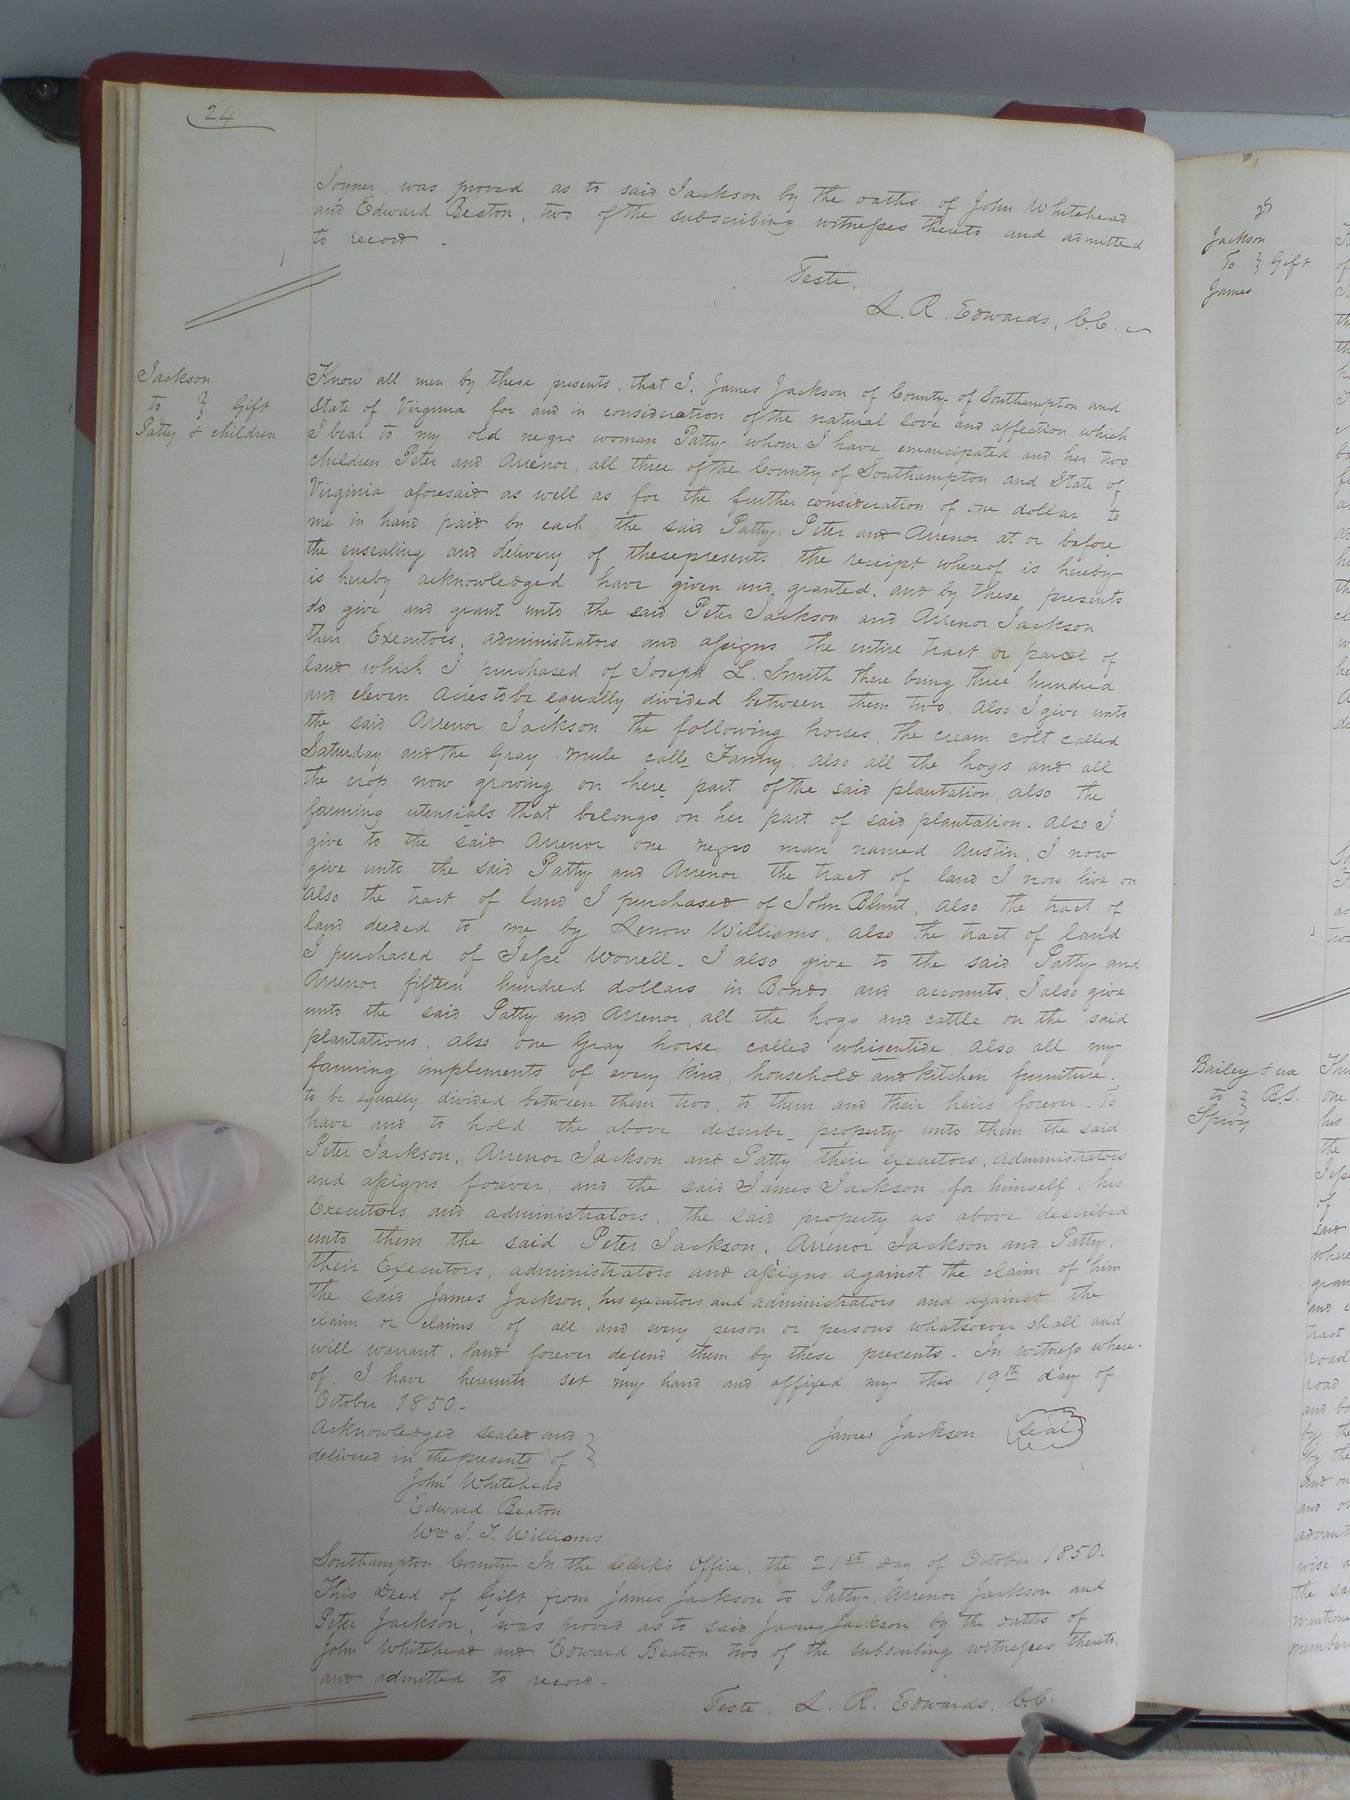 24
Joyner was proved as to said Jackson by the oaths of John Whitehead
and Edward Beaton, two of the subscribing witnesses thereto and admitted
to record -
Teste,
L. R. Edwards, C.C.
Jackson
to } Gift
Patty & children
Know all men by these presents, that I, James Jackson of County of Southampton and
State of Virginia for and in consideration of the natural love and affection which
I bear to my old negro woman Patty whom I have emancipated and her two
children Peter and Arrenor, all three of the County of Southampton and State of
Virginia aforesaid as well as for the further consideration of one dollar to
me in hand paid by each the said Patty, Peter and Arrenor at or before
the ensealing and delivery of these presents, the receipt whereof is hereby
is hereby acknowledged have given and granted, and by these presents
do give and grant unto the said Peter Jackson and Arrenor Jackson
their Executors, administrators and assigns the entire tract or parcel of
land which I purchased of Joseph L. Smith there being three hundred
and eleven Acres to be equally divided between them two. Also I give unto
the said Arrenor Jackson the following horses, the cream colt called
Saturday and the Gray mule calle Fanny. Also all the hogs and all
the crop now growing on here part of the said plantation, also the
farming utensials that belongs on her part of said plantation. Also I
give to the said Arrenor one negro man named Austin, I now
give unto the said Patty and Arrenor the tract of land I now live on
Also the tract of land I purchased of John Blunt, Also the tract of
land deeded to me by Lenow Williams, also the tract of land
I purchased of Jesse Worrell - I also give to the said Patty and
Arrenor fifteen hundred dollars in Bonds and accounts, I also give
unto the said Patty and Arrenor, all the hogs and cattle on the said
plantations, also one Gray horse called whisentide. Also all my
farming implements of every kind, household and kitchen furniture.
to be equally divided between them two, to them and their heirs forever. To
have and to hold the above describe property unto them the said
Peter Jackson, Arrenor Jackson and Patty their executors, administrators
and assigns forever, and the said James Jackson for himself, his
Executors and administrators, the said property as above described
unto them the said Peter Jackson, Arrenor Jackson and Patty,
their Executors, administrators and assigns against the claim of him
the said James Jackson, his executors and administrators and against the
claim or claims of all and every person or persons whatsoever shall and
will warrant, and forever defend them by these presents. In witness where-
of, I have hereunto set my hand and affixed my this 19th day of
October 1850-
Acknowledged sealed and }
delivered in the presents of }
James Jackson seal
John Whitehead
Edward Beaton
Wm J. T. Williams
Southampton County In the Clerk's Office, the 21st day of October 1850.
This Deed of Gift from James Jackson to Patty, Arrenor Jackson and
Peter Jackson, was proved as to said James Jackson by the oaths of
John Whitehead and Edward Beaton two of the subscribing witnesses thereto,
and admitted to record.
Teste, L. R. Edwards, C.C.
Jackson
To } Gift
James
Bailey & ux
to } B.S.
Spivy